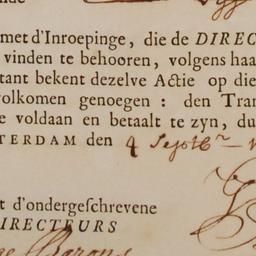 met d'Inroepinge, die de DIREC
vinden te behooren, volgens haa
tant bekent dezelve Actie op die
volkomen genoegen: den Tran
e voldaan en betaalt te zyn, du
STERDAM den 4 Septbr
t d'ondergeschrevene
DIRECTEURS